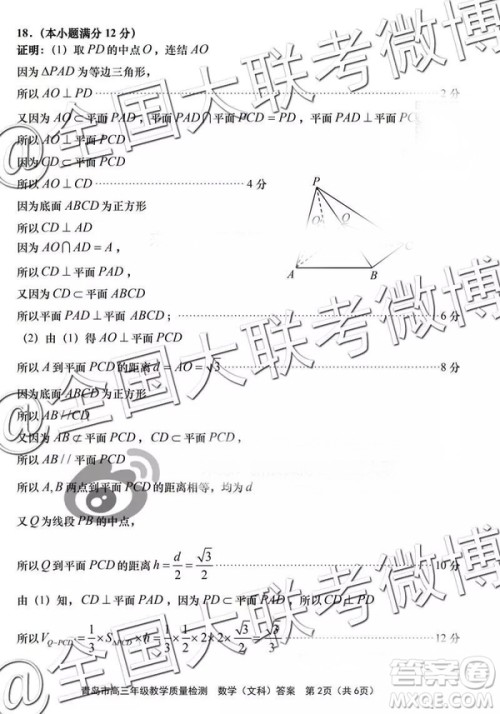 18．（本小题满分 12 分）
证明：（1）取 PD 的中点 O，连结 AO
因为 ΔPAD 为等边三角形，
所以 AO ⊥ PD ………… 2 分
又因为 AO ⊂ 平面 PAD，平面 PAD ∩ 平面 PCD = PD，平面 PAD ⊥ 平面 PC
所以 AO ⊥ 平面 PCD
因为 CD ⊂ 平面 PCD
所以 AO ⊥ CD ………… 4 分
因为底面 ABCD 为正方形
所以 CD ⊥ AD
因为 AO ∩ AD = A，
所以 CD ⊥ 平面 PAD，
又因为 CD ⊂ 平面 ABCD，
所以平面 PAD ⊥ 平面 ABC ； ………… 6 分
P
O
A
B
（2）由（1）得 AO ⊥ 平面 PCD
所以 A 到平面 PCD 的距离 d = AO = √3 ………… 8 分
因为底面 ABCD 为正方形
所以 AB // CD
又因为 AB ⊄ 平面 PCD，CD ⊂ 平面 PCD，
所以 AB // 平面 PCD
所以 A, B 两点到平面 PCD 的距离相等，均为 d
又 Q 为线段 PB 的中点，
所以 Q 到平面 PCD 的距离 h = d/2 = √3/2 ………… 10 分
由（1）知，CD ⊥ 平面 PAD，因为 PD ⊂ 平面 PAD，所以 CD ⊥ PD
所以 V_{Q-PCD} = 1/3 × S_{ΔPCD} × h = 1/3 × 1/2 × 2 × 2 × √3/2 = √3/3 ………… 12 分
青岛市高三年级教学质量检测 数学（文科）答案 第 2 页（共 6 页）
@全国大联考微博
@全国大联考微博
@全国大联考微博
答案圈